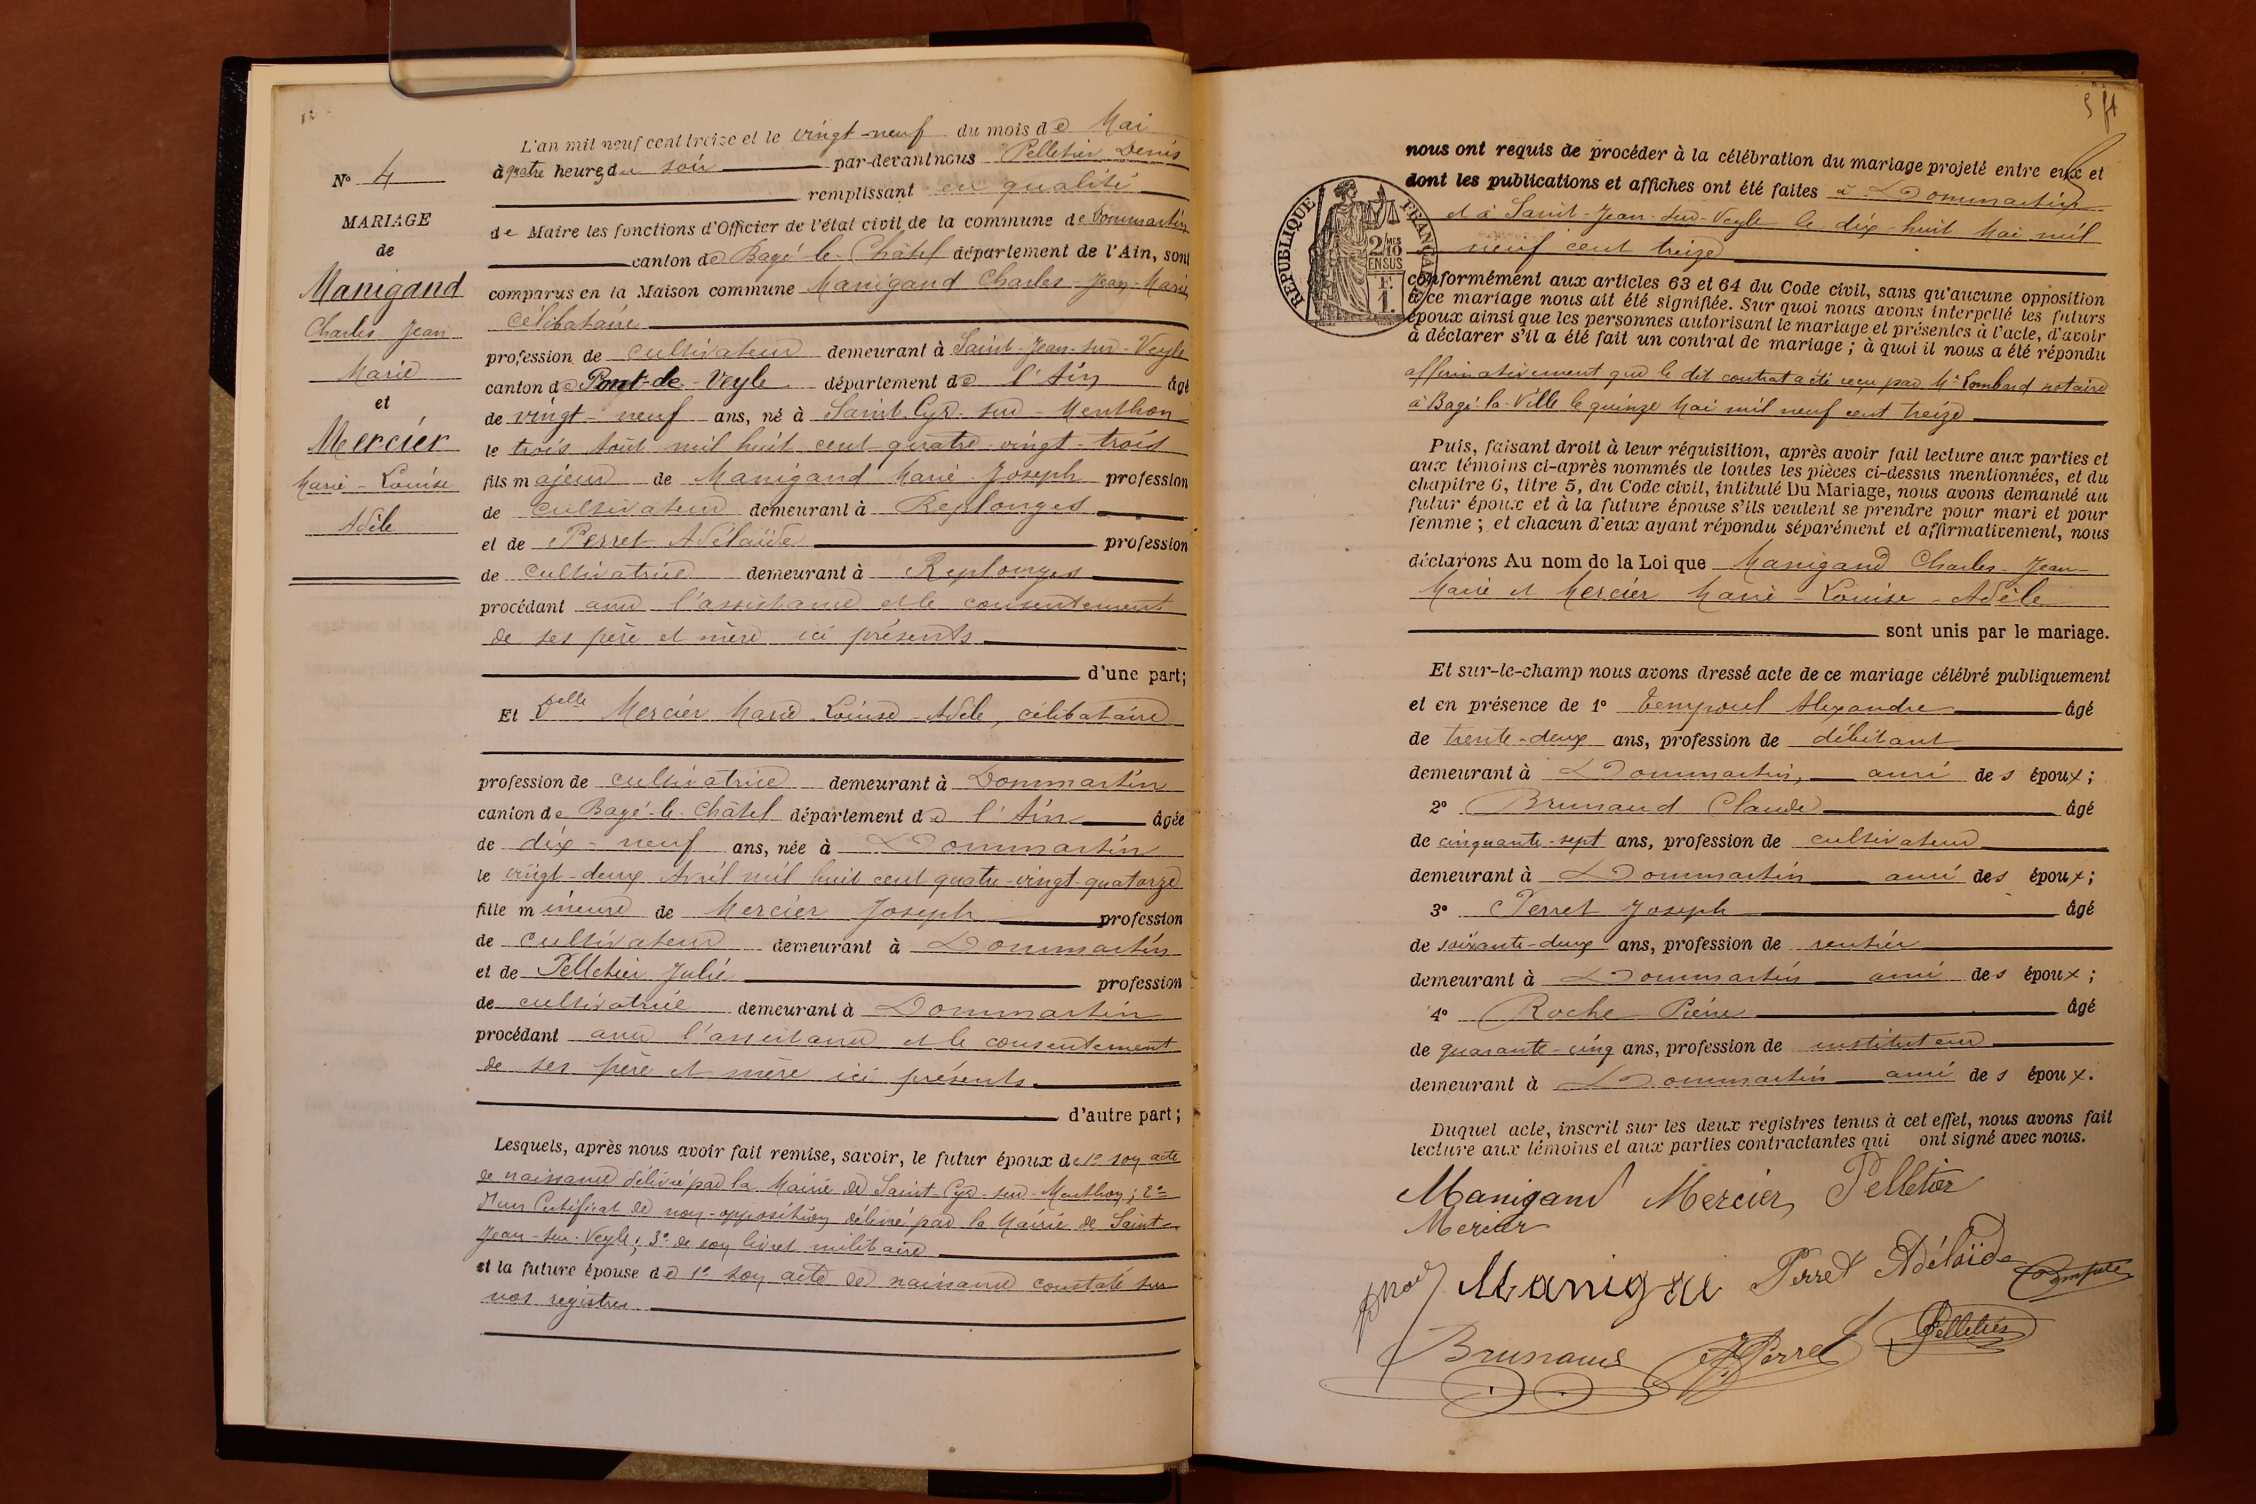 L'an mil neuf cent treize et le vingt-neuf du mois de Mai
à quatre heures du soir par-devant nous Pelletier Denis
remplissant en qualité
de Maire les fonctions d'Officier de l'état civil de la commune de Dommartin
canton de Bagé-le-Châtel département de l'Ain, sont
comparus en la Maison commune Manigand Charles-Jean-Marie,
célibataire
profession de cultivateur demeurant à Saint-Jean-sur-Veyle
canton de Pont-de-Veyle département de l'Ain âgé
de vingt-neuf ans, né à Saint-Cyr-sur-Menthon
le trois Août mil huit cent quatre-vingt-trois
fils majeur de Manigand Marie-Joseph profession
de cultivateur demeurant à Replonges
et de Perret Adélaïde profession
de cultivatrice demeurant à Replonges
procédant avec l'assistance et le consentement
de ses père et mère ici présents
d'une part;
Et Delle Mercier Marie-Louise-Adèle, célibataire
profession de cultivatrice demeurant à Dommartin
canton de Bagé-le-Châtel département de l'Ain âgée
de dix-neuf ans, née à Dommartin
le vingt-deux Avril mil huit cent quatre-vingt-quatorze
fille mineure de Mercier Joseph profession
de cultivateur demeurant à Dommartin
et de Pelletier Julie profession
de cultivatrice demeurant à Dommartin
procédant avec l'assistance et le consentement
de ses père et mère ici présents
d'autre part;
Lesquels, après nous avoir fait remise, savoir, le futur époux de 1° son acte
de naissance délivré par la Mairie de Saint-Cyr-sur-Menthon; 2°
d'un Certificat de non-opposition délivré par la Mairie de Saint-
Jean-sur-Veyle; 3° de son livret militaire
et la future épouse de 1° son acte de naissance constaté sur
nos registres
N° 4
MARIAGE
de
Manigand
Charles Jean
Marie
et
Mercier
Marie-Louise
Adèle
nous ont requis de procéder à la célébration du mariage projeté entre eux et
dont les publications et affiches ont été faites à Dommartin
et à Saint-Jean-sur-Veyle le dix-huit Mai mil
neuf cent treize
conformément aux articles 63 et 64 du Code civil, sans qu'aucune opposition
à ce mariage nous ait été signifiée. Sur quoi nous avons interpellé les futurs
époux ainsi que les personnes autorisant le mariage et présentes à l'acte, d'avoir
à déclarer s'il a été fait un contrat de mariage; à quoi il nous a été répondu
affirmativement que le dit contrat a été reçu par Me Lombard notaire
à Bagé-la-Ville le quinze Mai mil neuf cent treize
Puis, faisant droit à leur réquisition, après avoir fait lecture aux parties et
aux témoins ci-après nommés de toutes les pièces ci-dessus mentionnées, et du
chapitre 6, titre 5, du Code civil, intitulé Du Mariage, nous avons demandé au
futur époux et à la future épouse s'ils veulent se prendre pour mari et pour
femme; et chacun d'eux ayant répondu séparément et affirmativement, nous
déclarons Au nom de la Loi que Manigand Charles-Jean-
Marie et Mercier Marie-Louise-Adèle
sont unis par le mariage.
Et sur-le-champ nous avons dressé acte de ce mariage célébré publiquement
et en présence de 1° Alexandre âgé
de trente-deux ans, profession de débitant
demeurant à Dommartin, ami des époux;
2° Brunaud Claude âgé
de cinquante-sept ans, profession de cultivateur
demeurant à Dommartin ami des époux;
3° Perret Joseph âgé
de soixante-deux ans, profession de rentier
demeurant à Dommartin ami des époux;
4° Roche Pierre âgé
de quarante-cinq ans, profession de instituteur
demeurant à Dommartin ami des époux.
Duquel acte, inscrit sur les deux registres tenus à cet effet, nous avons fait
lecture aux témoins et aux parties contractantes qui ont signé avec nous.
Manigand Mercier Pelletier
Mercier
Perret Adélaïde
Brunaud Perret Pelletier
RÉPUBLIQUE FRANÇAISE
2/10
EN SUS
F.
1.